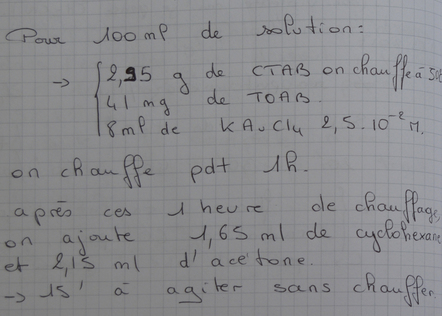 Pour 100 ml de solution:
→ 2,95 g de CTAB on chauffe à 50
41 mg de TOAB.
8 ml de KAuCl4 2,5.10⁻² M.
on chauffe pdt 1h.
après ces 1 heure de chauffage,
on ajoute 1,65 ml de cyclohexane
et 2,15 ml d'acetone.
→ 15' à agiter sans chauffer